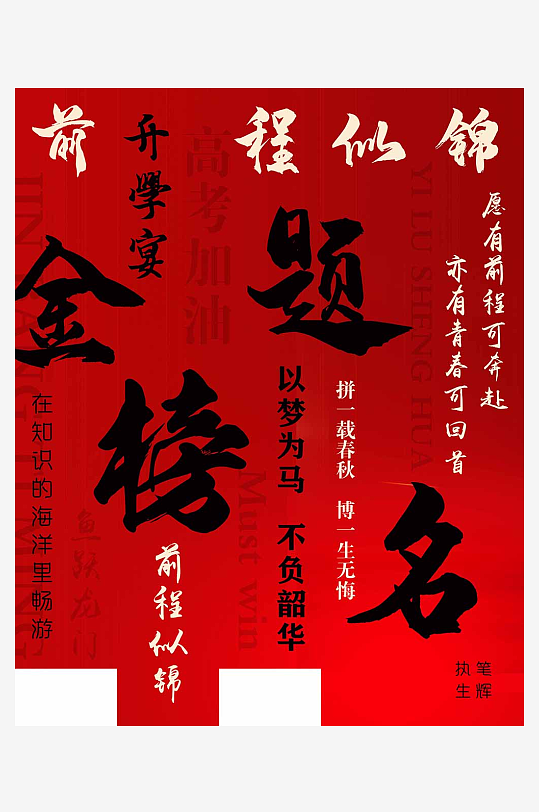 前程似锦
升學宴
高考加油
金榜题名
愿有前程可奔赴
亦有青春可回首
YI LU SHENG HUA
以梦为马 不负韶华
拼一载春秋 博一生无悔
在知识的海洋里畅游
JIN BANG TI MING
鱼跃龙门
前程似锦
Must win
执笔
生辉